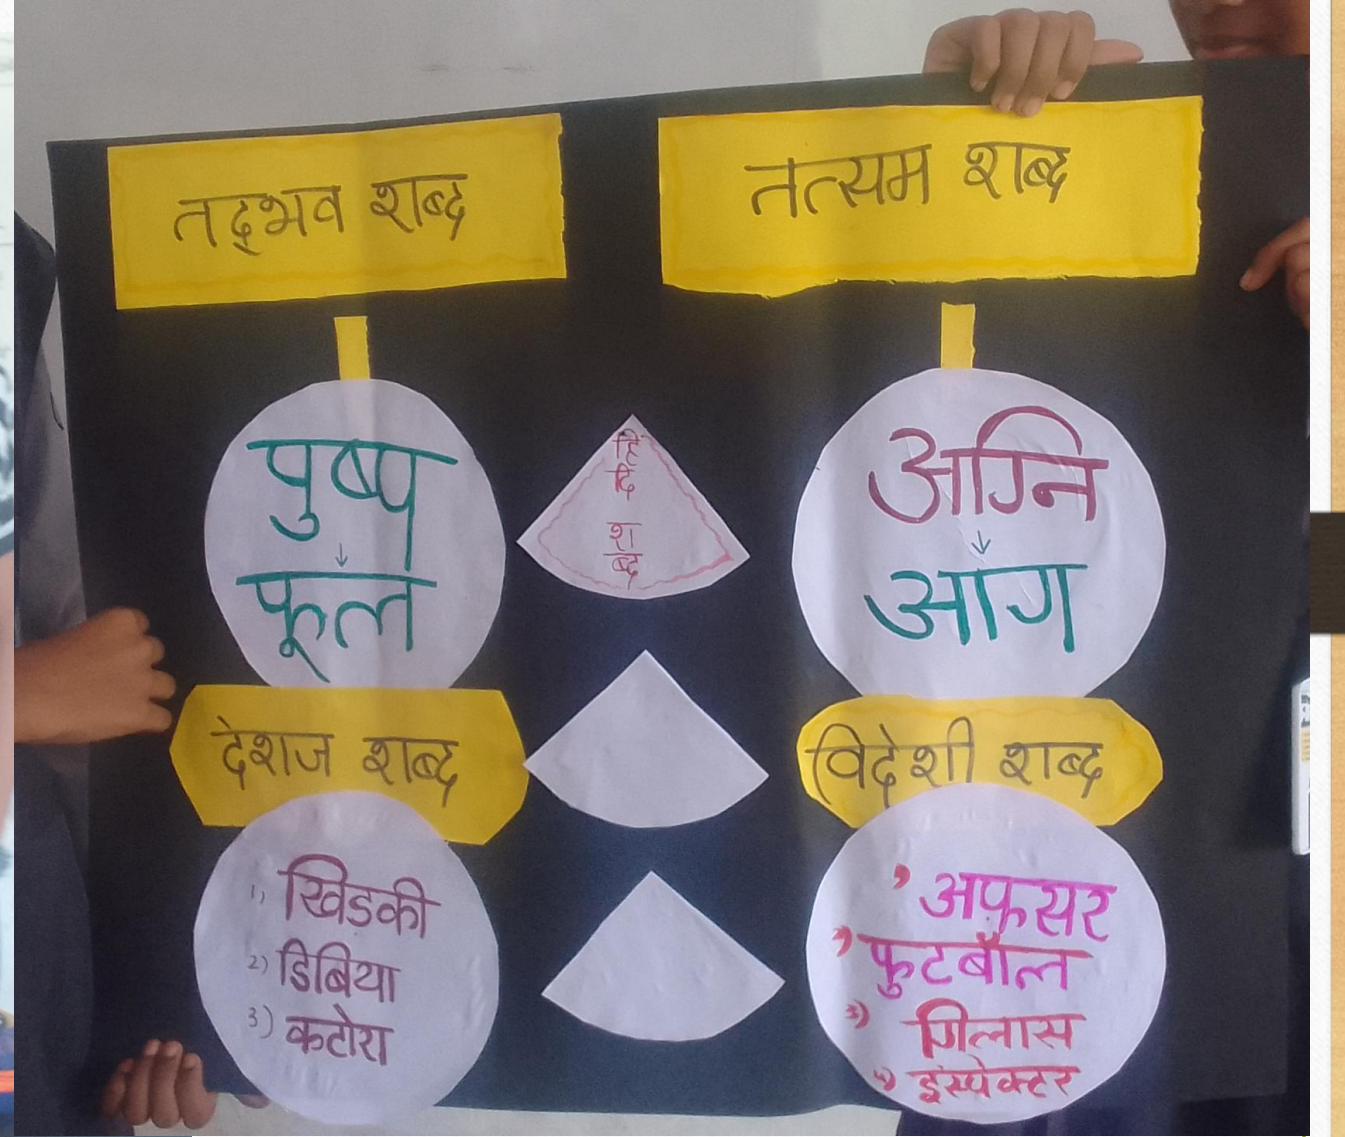 तद्भव शब्द
तत्सम शब्द
पुष्प
↓
फूल
हिं
दि
श
ब्द
अग्नि
↓
आग
देशज शब्द
विदेशी शब्द
1) खिड़की
2) डिबिया
3) कटोरा
अफ़सर
फुटबॉल
3) गिलास
इंस्पेक्टर